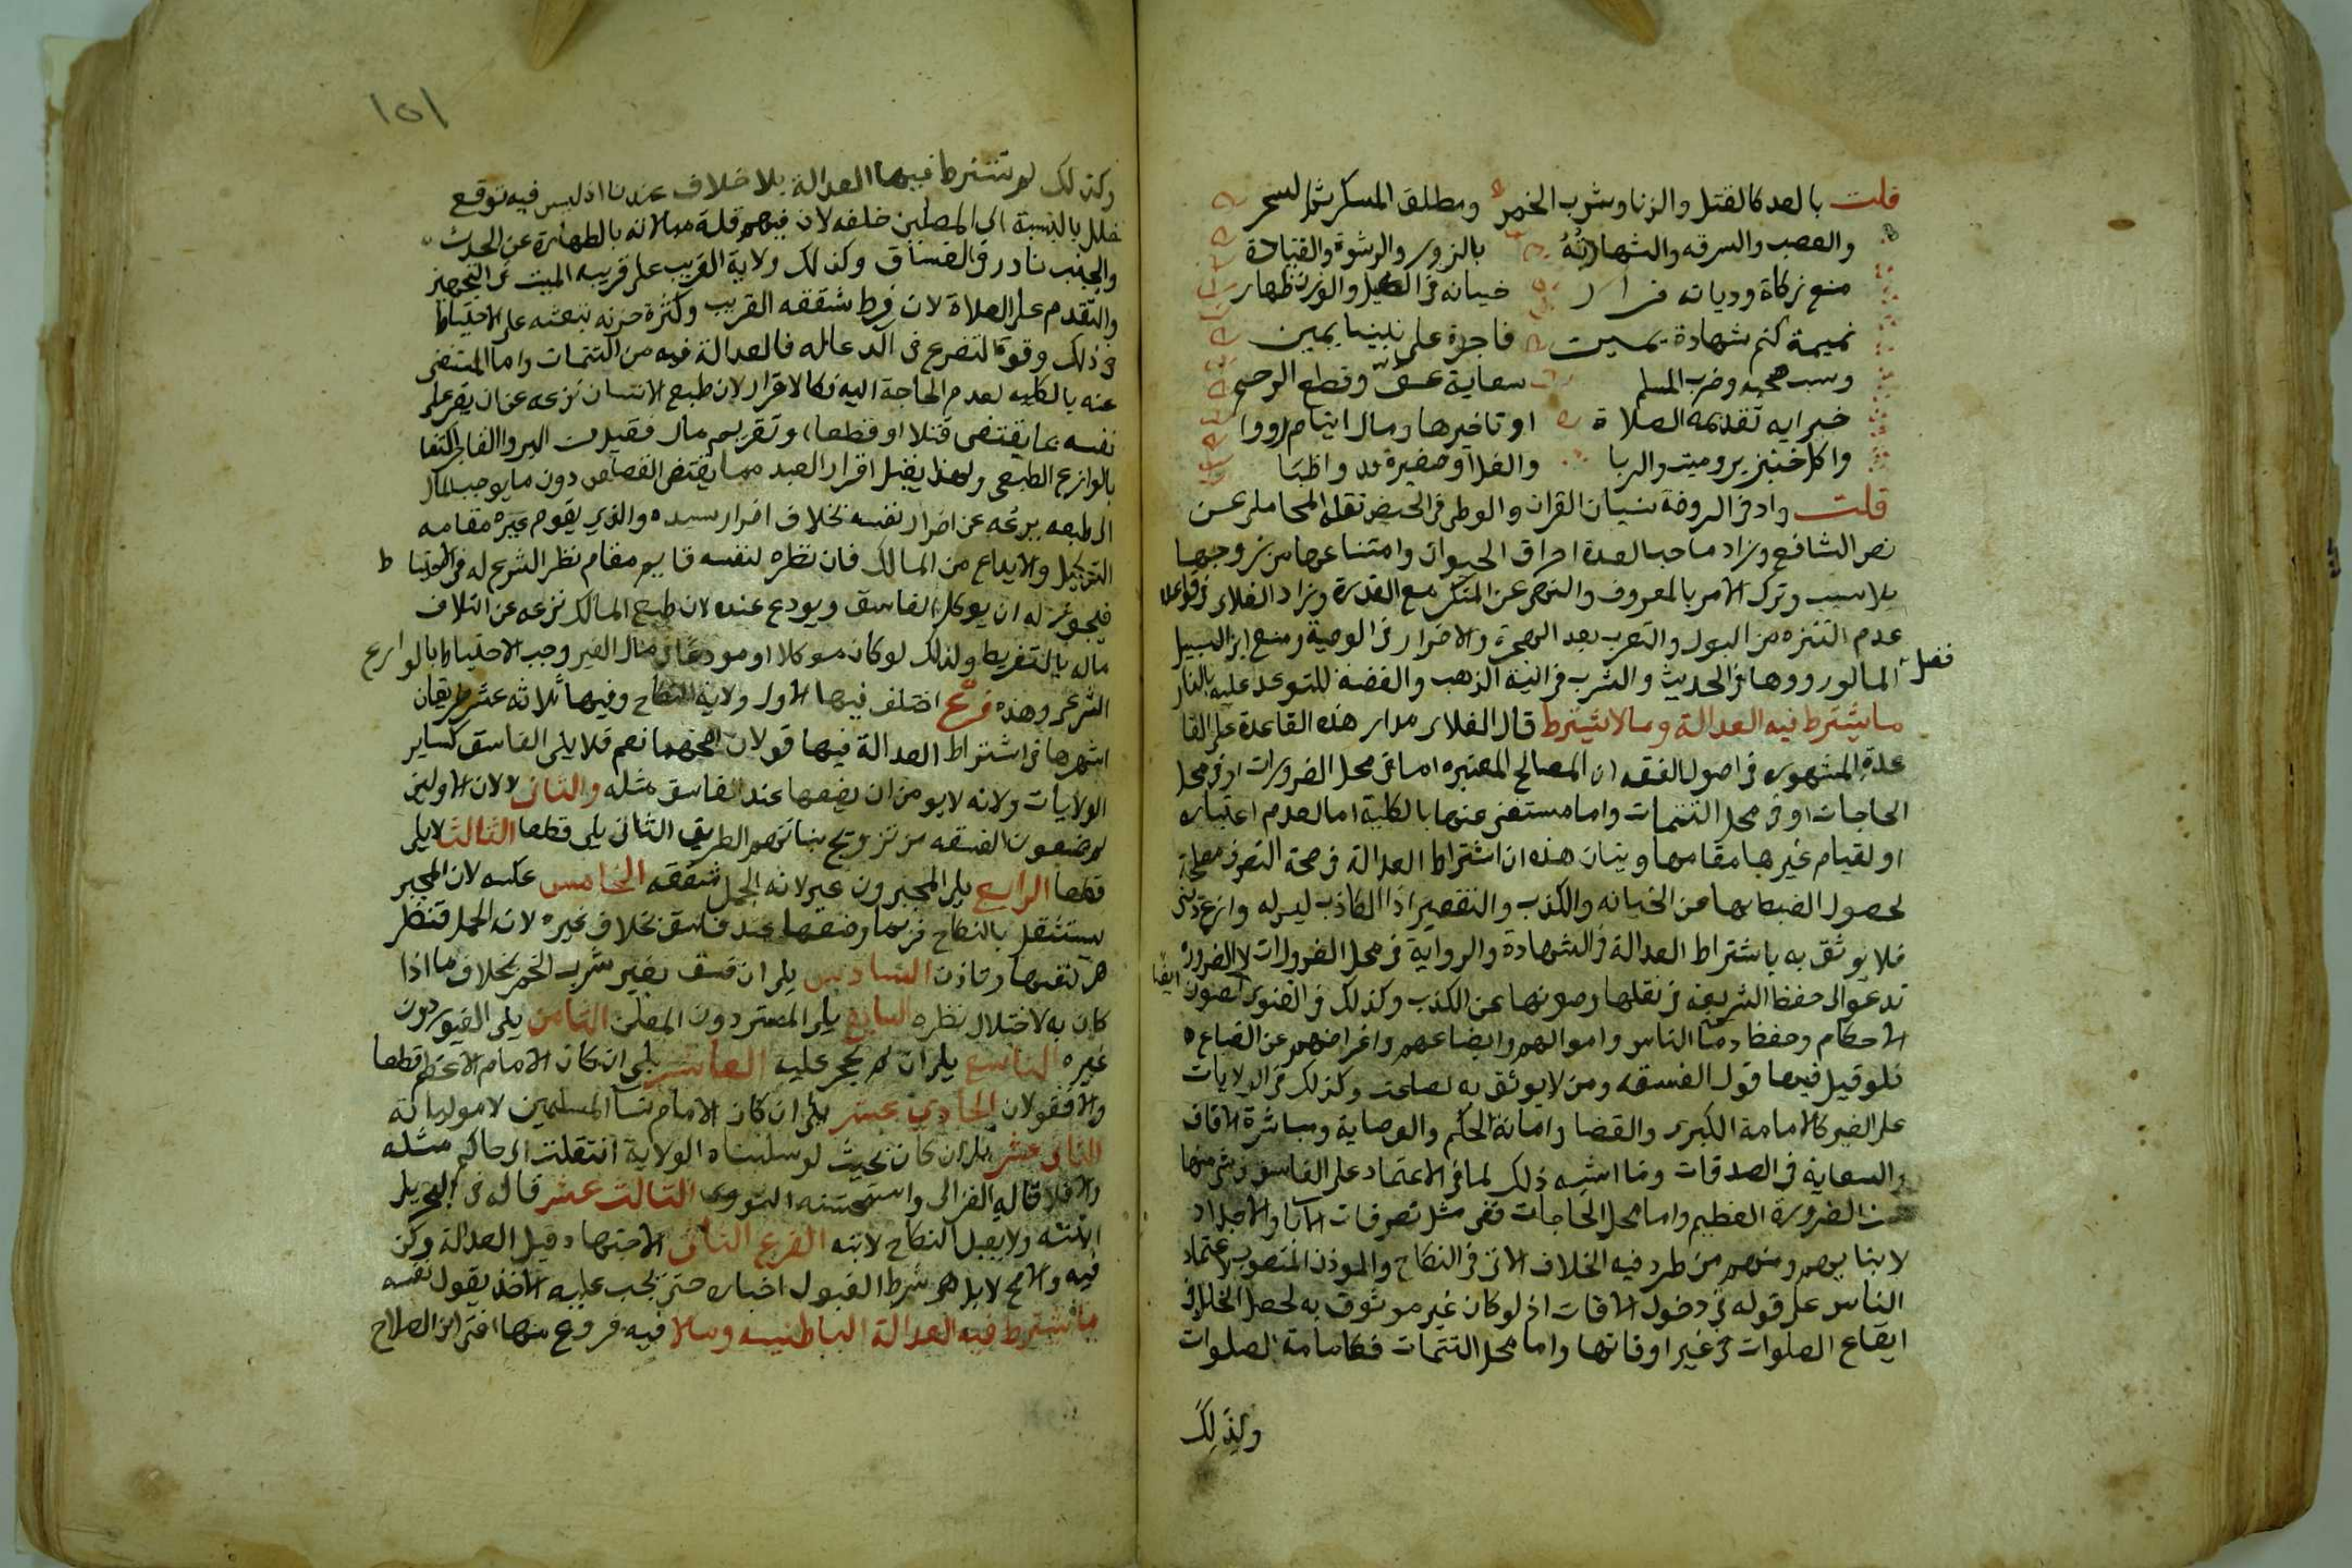 قلت بالعد كالقتل والزنا وشرب الخمر ومطلق المسكر ثم السحر
والغصب والسرقه والشهاده بالزور والرشوة والقيادة
منع زكاة ودياثه فرار خيانه في الكيل والوزن ظهار
نميمة كتم شهادة يمين فاجرة على نبينا يمين
وسب صحبه وضرب المسلم سعاية عق وقطع الرحم
خيرايه تقديمه الصلاة او تاخيرها ومال ايتام رووا
واكل خنزير وميت والربا والغل او صغيرة قد واظبا
قلت زاد في الروضة نسيان القران والوطى في الحيض نقله المحاملى عن
نص الشافعى وزاد صاحب العدة احراق الحيوان وامتناعها من زوجها
بلا سبب وترك الامر بالمعروف والنهى عن المنكر مع القدرة وزاد العلاى في قواعده
عدم التنزه من البول والتعرب بعد الهجرة والاضرار في الوصية ومنع ابن السبيل
فضل
الما لورودها في الحديث والشرب في انية الذهب والفضة للتوعد عليه بالنار
ما يشترط فيه العدالة وما لا يشترط قال العلاى مدار هذه القاعدة على القا
عدة المشهوره في اصول الفقه ان المصالح المعتبره اما في محل الضرورات او في محل
الحاجات او في محل التتمات واما مستغنى عنها بالكلية اما لعدم اعتباره
او لقيام غيرها مقامها وبيان هذه ان اشتراط العدالة في صحة التصرف مصلحة
لحصول الضبط بها عن الخيانه والكذب والتقصير اذ الكاذب ليس له وازع دينى
فلا يوثق به باشتراط العدالة في الشهادة والرواية في محل الضرورات لان الضرورة
تدعو الى حفظ الشريعة في نقلها وصونها عن الكذب وكذلك في الفتوى لصون ايضا
الاحكام وحفظ دما الناس واموالهم وابضاعهم واعراضهم عن الضياع
فلو قبل فيها قول الفسقه ومن لا يوثق به لضاعت وكذلك في الولايات
على الغير كالامامة الكبرى والقضا وامانة الحكم والوصاية ومباشرة الاوقاف
والسعاية في الصدقات وما اشبه ذلك لما في الاعتماد على الفاسق في شى منها
من الضرورة العظيم واما محل الحاجات ففى مثل تصرفات الابا والاجداد
لابنايهم ومنهم من طرد فيه الخلاف الاتى في النكاح والموذن المنصوب لاعتماد
الناس على قوله في دخول الاوقات اذ لو كان غير موثوق به لحصل الخلل في
ايقاع الصلوات في غير اوقاتها واما محل التتمات فكامامة الصلوات
ولذلك
١٥١
وكذلك لم تشترط فيها العدالة بلا خلاف عندنا اذ ليس فيه توقع
خلل بالنسبة الى المصلين خلفه لان فيهم قلة مبالاته بالطهارة عن الحدث
والجنب نادر في الفساق وكذلك ولاية القريب على قريبه الميت في التجهيز
والتقدم على الصلاة لان فرط شفقه القريب وكثرة حزنه يبعثه على الاحتياط
في ذلك وقوة التضرع في الدعا له فالعدالة فيه من التتمات واما المستغنى
عنه بالكليه لعدم الحاجة اليه فكالاقرار لان طبع الانسان يزعه عن ان يقر على
نفسه بما يقتضى قتلا او قطعا او تغريم مال فقبلت البر والفاجر اكتفا
بالوازع الطبعى ولهذا يقبل اقرار العبد مما يقتضى القصاص دون ما يوجب المال
اذ طبعه يزعه عن اضرار نفسه بخلاف اضرار سيده والذي يقوم غيره مقامه
التوكيل والايداع من المالك فان نظره لنفسه قايم مقام نظر الشرع له في الاحتياط
فيجوز له ان يوكل الفاسق ويودع عنده لان طبع المالك يزعه عن اتلاف
ماله بالتفريط ولذلك لو كان موكلا او مودعا في مال الغير وجب الاحتياط بالوازع
الشرعى وهذه فروع اختلف فيها الاول ولاية النكاح وفيها ثلاثه عشر طريقان
اشهرها في اشتراط العدالة فيها قولان اصحهما نعم فلا يلى الفاسق كساير
الولايات ولانه لا يومن ان يضعها عند فاسق مثله والثانى لا لان الاولين
لم يمنعون الفسقه من تزويج بناتهم الطريق الثانى يلى قطعا الثالث لا يلى
قطعا الرابع يلى المجبرون غير لانه اكمل شفقه الخامس عكسه لان المجبر
يستقل بالنكاح فربما وضعها عند فاسق بخلاف غيره لانه اكمل فتنظر
هى لنفسها وتاذن السادس يلى ان فسق بغير شرب الخمر بخلاف ما اذا
كان به لاختلال نظره السابع يلى المستتر دون المعلن الثامن يلى الغيور دون
غيره التاسع يلى ان لم يحجر عليه العاشر يلى ان كان الامام الاعظم قطعا
والا فقولان الحادي عشر يلى ان كان الامام نسا المسلمين لا مولياته
الثانى عشر يلى ان كان بحيث لو سلبناه الولاية انتقلت الى حاكم مثله
والا فلا قاله الغزالى واستحسنه النووى الثالث عشر قاله في البحر يلى
ابنته ولا يقبل النكاح لابنه الفرع الثانى الاجتهاد قيل العدالة ركن
فيه والاصح لا بل هو شرط القبول اخباره حتى يجب عليه الاخذ بقول نفسه
ما يشترط فيه العدالة الباطنيه وما لا فيه فروع منها افتى ابن الصلاح